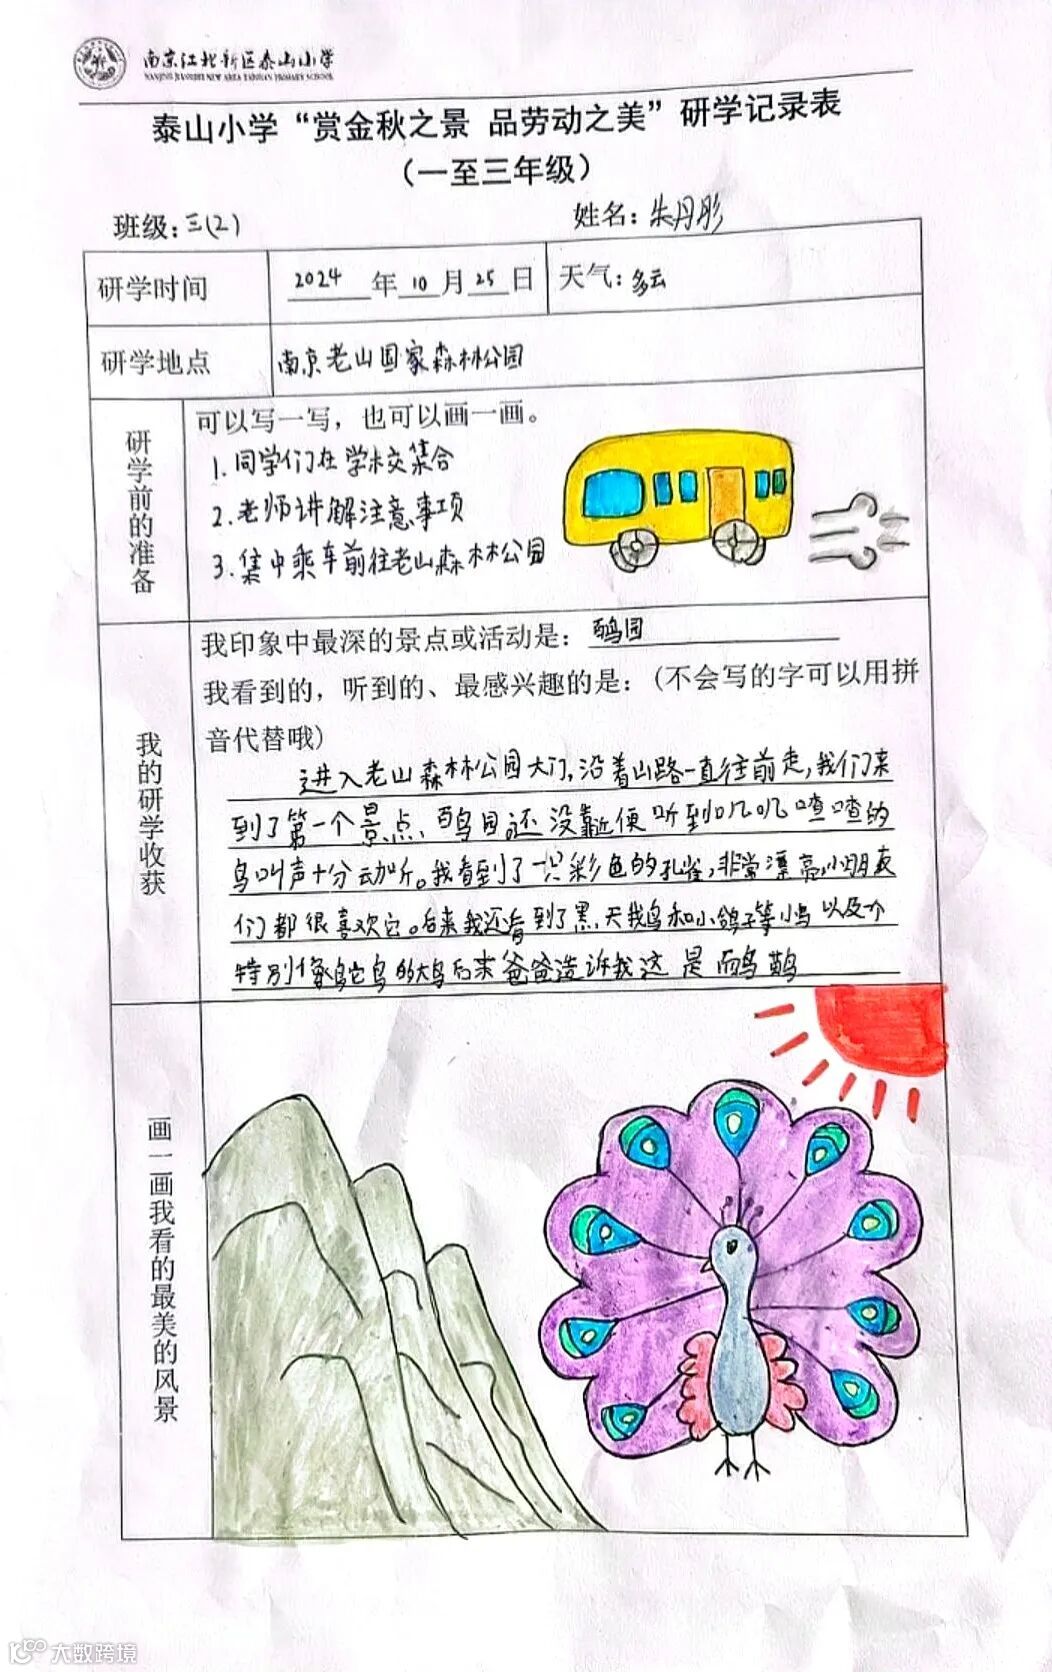 南京江北新区泰山小学
NANJING JIANGBEI NEW AREA TAISHAN PRIMARY SCHOOL
泰山小学“赏金秋之景 品劳动之美”研学记录表
（一至三年级）
班级：三(2) 姓名：朱丹彤
研学时间 2024年10月25日 天气：多云
研学地点 南京老山国家森林公园
研学前的准备
可以写一写，也可以画一画。
1.同学们在学校集合
2.老师讲解注意事项
3.集中乘车前往老山森林公园
我的研学收获
我印象中最深的景点或活动是：百鸟园
我看到的，听到的、最感兴趣的是：（不会写的字可以用拼
音代替哦）
进入老山森林公园大门，沿着山路一直往前走，我们来
到了第一个景点、百鸟园还没靠近便听到叽叽喳喳的
鸟叫声十分动听。我看到了一只彩色的孔雀，非常漂亮，小朋友
们都很喜欢它。后来我还看到了黑天鹅和小鸽子等小鸟以及个
特别像鸵鸟的大鸟后来爸爸告诉我这是
画一画我看的最美的风景
大数跨境